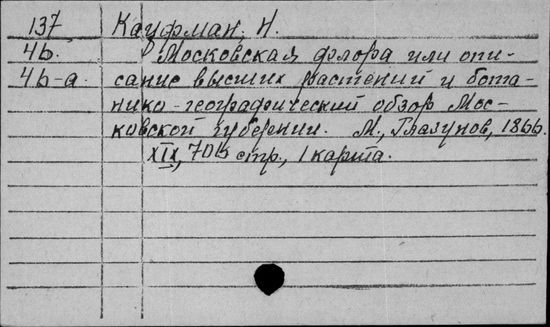 137 Кауфман, Н.
4б. Московская флора или опи-
4б-а. сание высших растений и бота-
нико-географический обзор Мос-
ковской губернии. М., Глазунов, 1866.
XIX, 706 стр., 1 карта.